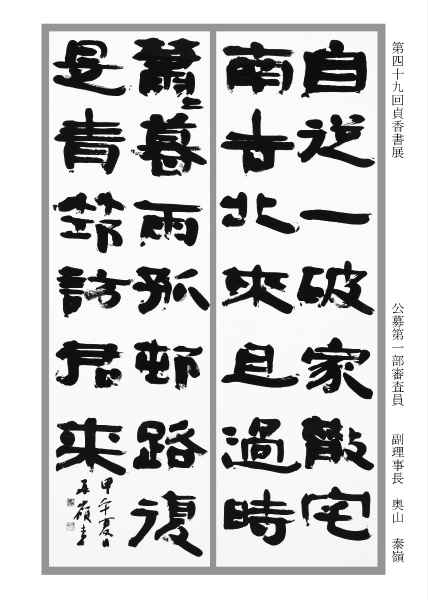 第四十九回貞香書展　公募第一部審査員　副理事長　奥山　泰嶺
自從一破家散宅
南去北來且過時
蕭々暮雨孤邨路復
是青筇訪君来
甲午夏日
泰嶺書